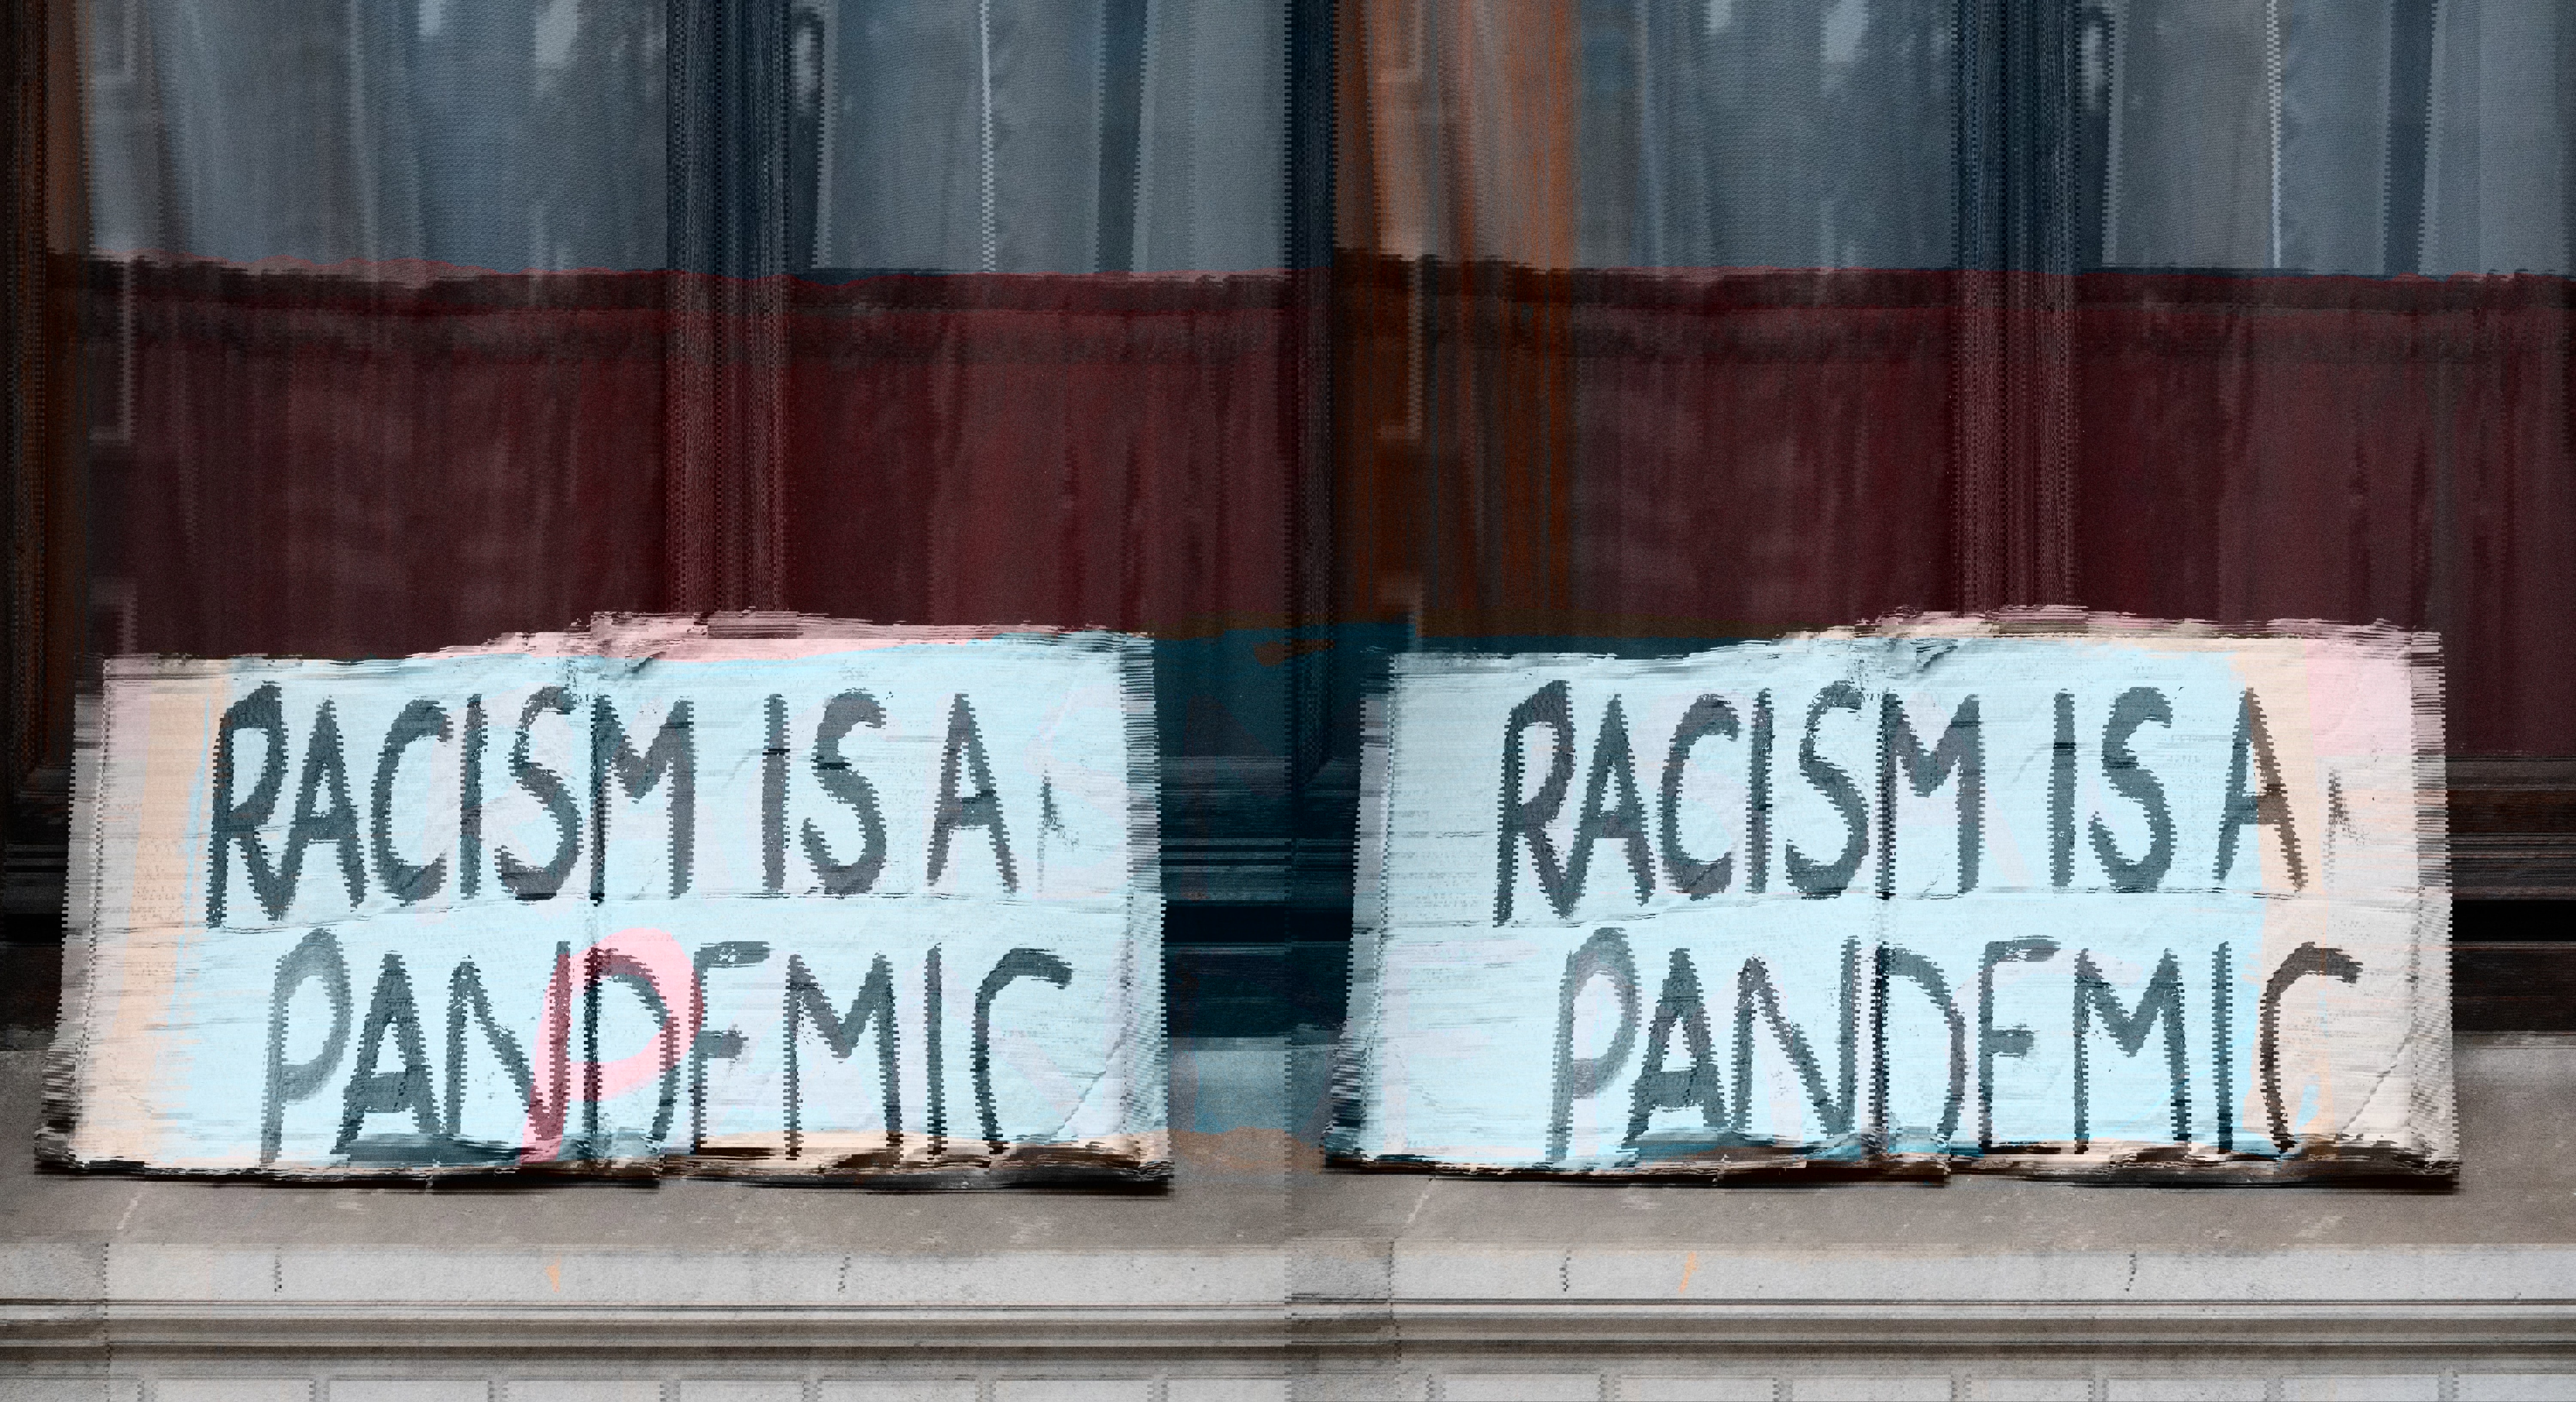 RACISM IS A
PANPEMIC
RACISM IS A
PANDEMIC